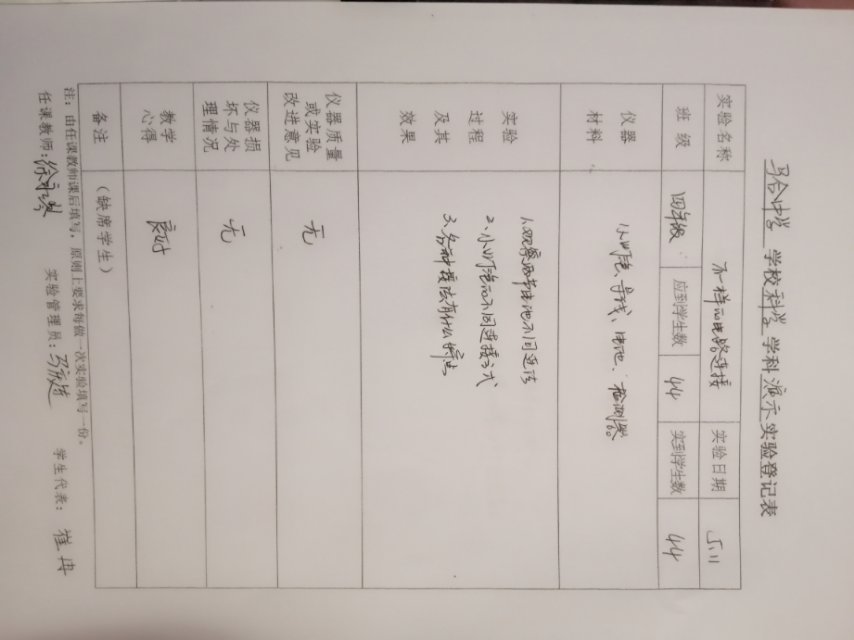 马合中学 学校 科学 学科 演示 实验登记表
实验名称 不一样的电路连接 实验日期 5.11
班级 四年级 应到学生数 44 实到学生数 44
仪器 小灯泡、导线、电池、检测器
材料
实验 1.观察两节电池不同连法
过程 2、小灯泡的不同连接方式
及其 3、各种接法有什么特点
效果
仪器质量
或实验 无
改进意见
仪器损
坏与处 无
理情况
教学 良好
心得
备注 (缺席学生)
注:由任课教师课后填写,原则上要求每做一次实验填写一份。
任课教师:徐永琴 实验管理员:马 学生代表:崔冉